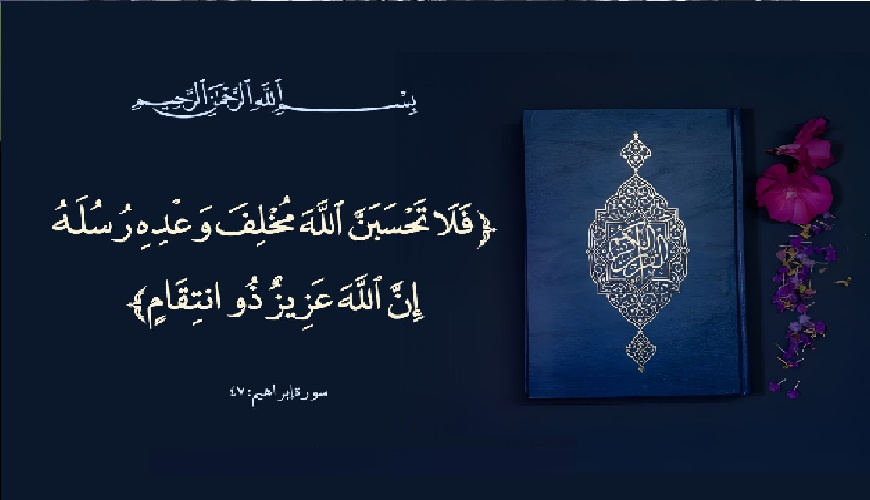 بِسْــــمِ ٱللَّهِ ٱلرَّحْمَٰنِ ٱلرَّحِيمِ
﴿فَلَا تَحْسَبَنَّ ٱللَّهَ مُخْلِفَ وَعْدِهِ رُسُلَهُ
إِنَّ ٱللَّهَ عَزِيزٌ ذُو انتِقَامٍ﴾
سورة إبراهيم: ٤٧
القرآن الكريم